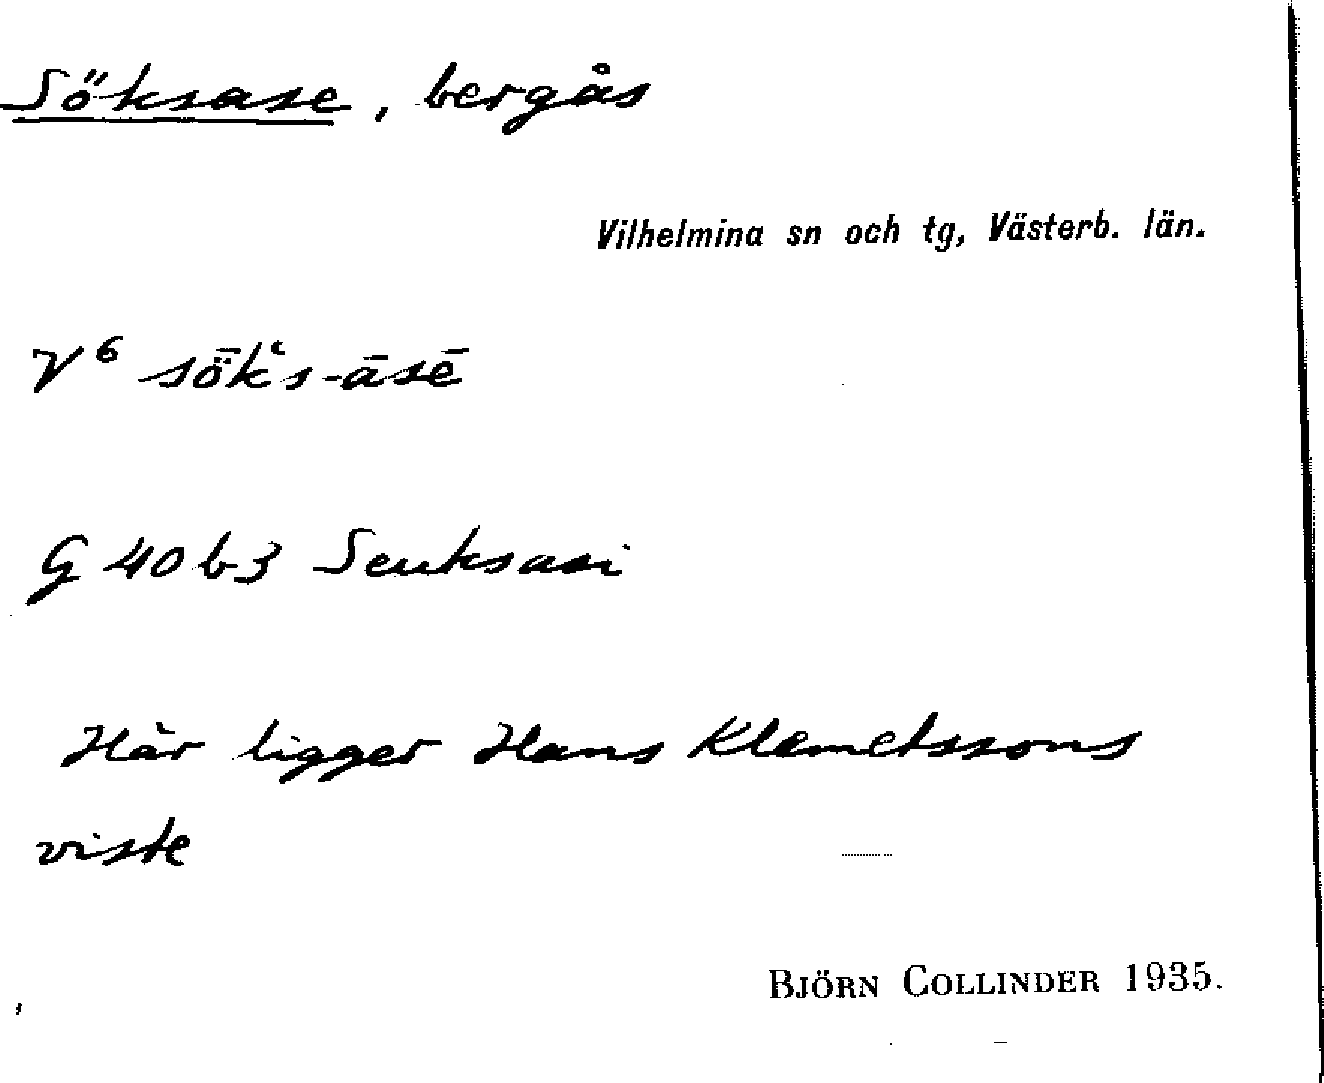 Söksase, bergås
Vilhelmina sn och tg, Västerb. län.
V⁶ sȫkʿs-āsē
G 40 b 3 Seuksasi
Här ligger Hans Klemetssons
viste
BJÖRN COLLINDER 1935.